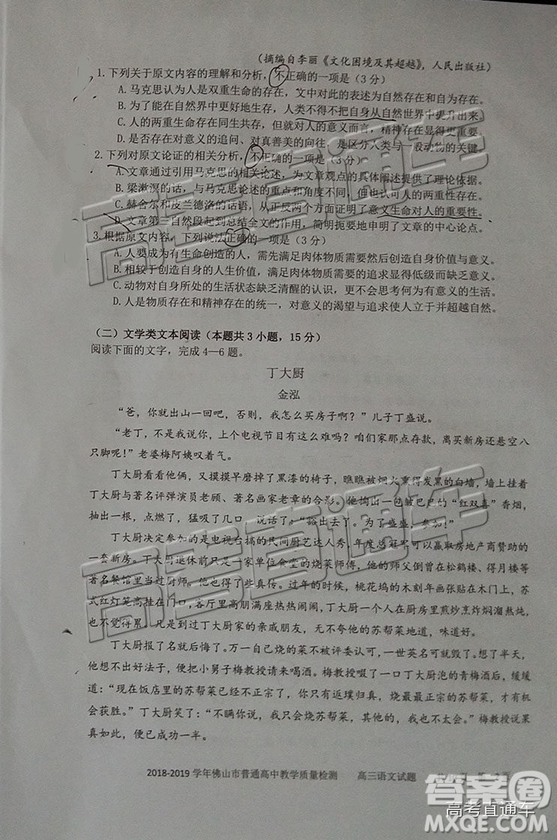 (摘编自李丽《文化困境及其超越》,人民出版社)
1.下列关于原文内容的理解和分析,不正确的一项是(3分)
A.马克思认为人是双重生命的存在,文中对此的表述为自然存在和意义存在。
B.为了能在自然界中更好地生存,人类不得不把自身从自然世界中提升出来。
C.人的两重生命存在同生共存,但就人的发展和意义而言,精神存在显得更为重要。
D.是否存在对意义的追问、对真善美的向往,是区分人类与一般动物的关键。
2.下列对原文论证的相关分析,不正确的一项是(3分)
A.文章通过引用马克思的相关论述,为文章观点的阐述提供了理论依据。
B.梁漱溟的话,是从正面论述了人类对生命意义的关注与自然生命息息相关。
C.赫舍尔和皮兰德洛的话语,从正反两个方面阐明了意义生命对人的重要性。
D.文章第三自然段起到总结全文的作用,简明扼要地申明了文章的中心论点。
3.根据原文内容,下列说法正确的一项是(3分)
A.人要成为有生命创造的人,需先满足肉体物质需要然后创造自身价值与意义。
B.相较于创造自身的人生价值,满足肉体物质需求的追求显得低级而缺乏意义。
C.动物对自身的生活状态缺乏清醒的认识,更不会思考如何创造自身价值与意义。
D.人是物质存在和精神存在的统一,对意义的渴望与追求使人立于并超越自然。
(二)文学类文本阅读(本题共3小题,15分)
阅读下面的文字,完成4—6题。
丁大厨
金泓
“爸,你就出山一回吧,否则,我怎么买房子啊?”儿子丁盛说。
“老丁,不是我说你,上个电视节目有那么难吗?咱们家那点存款,离买新房还悬空八
只脚呢!”老婆梅阿姨叹着气。
丁大厨看看他俩,又摸摸早磨掉了黑漆的椅子,瞧瞧被烟火重重得发黑的白墙,瞅瞅
丁大厨与著名评弹演员老顾、著名画家老章的合影。他掏出一包皱巴巴的“红双喜”香烟,
抽出一根,点燃了,猛吸了几口,说话了:“豁出去了,为了盛盛,我参加!”
丁大厨要参加的是电视台搞的民间厨艺达人秀,周、季度总评可以赢得房地产商赞助的
一套新房。丁大厨退休前只是一家单位食堂的烧饭师傅,他的师父倒曾在松鹤楼、得月楼等
著名菜馆掌过勺,他也得了些真传。过年过节的时候,桃花坞的木刻年画张贴在大门上,苏
式红灯笼高挂在门下,各厅人家在厨房里煎炒烹炸焖溜熬炖,
也不觉得累。只是到过丁大厨家的亲戚朋友,无不夸他的苏帮菜地道,味道好。
丁大厨报了名就后悔了。万一自己烧的菜不被评委认可,一世英名可就毁了。想了想,
他想不出好法子,便把棋友梅教授请来喝酒。梅教授喝了一口丁大厨泡的青梅酒后,缓缓
道:“现在你烧的是苏帮菜,你只有返璞归真,烧最最正宗的苏帮菜,才能出奇制胜啊!”
丁大厨笑了:“不瞒你说,我也只会烧苏帮菜,其他的菜我也不会烧呀!”说罢,梅教授
先是一愣,后来也哈哈大笑起来。
2018-2019学年佛山市普通高中教学质量检测 高三语文试题
高考直通车
高考直通车
高考直通车
高考直通车
答案圈
MXQE.COM